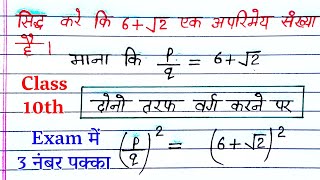 सिद्ध करे कि 6+√2 एक अपरिमेय संख्या
है।
माना कि p/q = 6+√2
Class
10th
दोनो तरफ वर्ग करने पर
Exam में
3 नंबर पक्का
(p/q)² = (6+√2)²